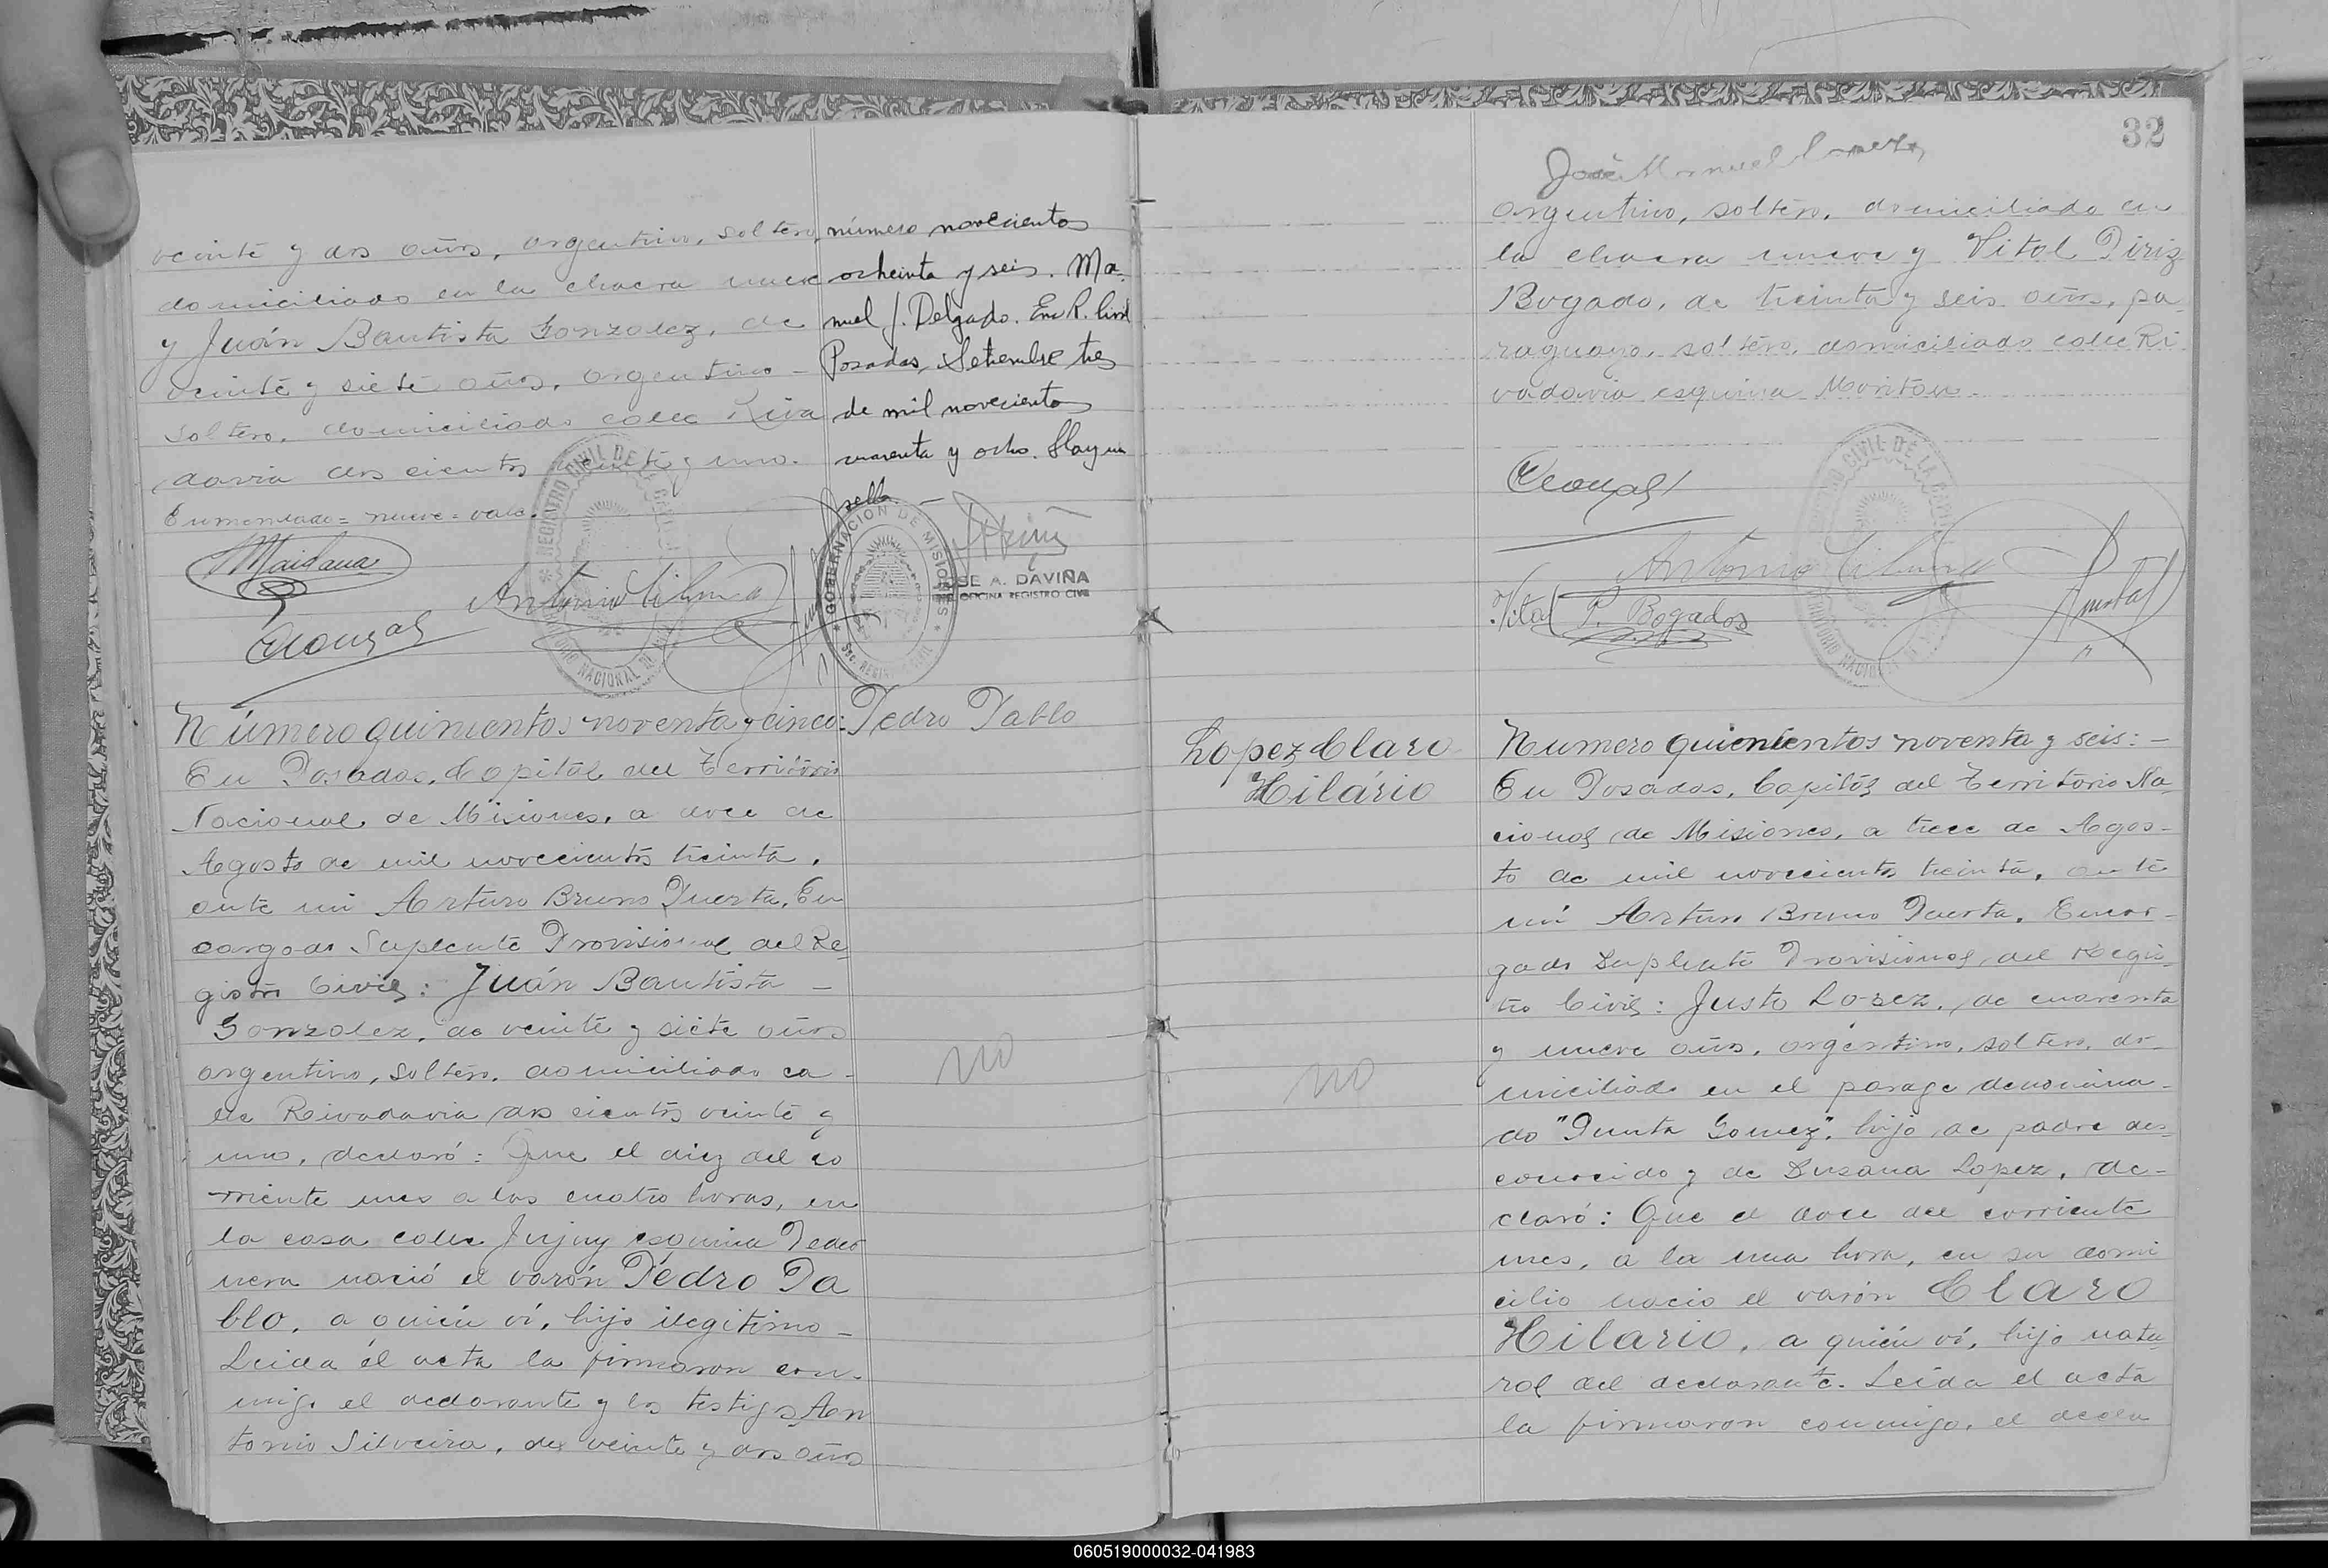 veinte y dos años, argentino, soltero,
domiciliado en la chacra nueve
y Juán Bautista Gonzalez, de
veinte y siete años, argentino -
soltero, domiciliado calle Riva
davia dos cientos veinte y uno.
Enmendado = nueve = vale.
número novecientos
ocheinta y seis. Ma-
nuel J. Delgado. Enc R. Civil
Posadas, Setiembre tres
de mil novecientos
cuarenta y ocho. Hay un
sello. -
Maidana
Antonio Silveira
REGISTRO CIVIL DE LA CAPITAL
TERRITORIO NACIONAL DE
GOBERNACION DE MISIONES
JOSE A. DAVIÑA
OFICINA REGISTRO CIVIL
Número quinientos noventa y cinco:
Pedro Pablo
En Posadas, Capital del Territorio
Nacional, de Misiones, a doce de
Agosto de mil novecientos treinta,
ante mi Arturo Bruno Puerta, En
cargado Suplente Provisional del Re-
gistro Civil: Juán Bautista -
Gonzalez, de veinte y siete años
argentino, soltero, domiciliado ca -
lle Rivadavia dos cientos veinte y
uno, declaró: Que el diez del co
rriente mes a las cuatro horas, en
la casa calle Jujuy esquina Peder
nera nació el varón Pédro Pa
blo, a quién ví, hijo ilegitimo -
Leida el acta la firmaron con-
migo el declarante y los testigos, An
tonio Silveira, de veinte y dos años
no
32
José Manuel
argentino, soltero, domiciliado en
la chacra nueve y Vital Piriz
Bogado, de treinta y seis años, pa-
raguayo, soltero, domiciliado calle Ri
vadavia esquina Moritan.
Antonio Silveira
Vital P. Bogados
REGISTRO CIVIL DE LA CAPITAL
TERRITORIO NACIONAL
Lopez Claro
Hilário
no
Numero quinientos noventa y seis: -
En Posadas, Capital del Territorio Na-
cional de Misiones, a trece de Agos-
to de mil novecientos treinta, ante
mí Arturo Bruno Puerta, Encar-
gado Suplente Provisional, del Regis-
tro Civil: Justo Lopez, de cuarenta
y nueve años, argentino, soltero, do-
miciliado en el parage denomina-
do "Punta Gomez", hijo de padre des-
conocido y de Susana Lopez, de-
claró: Que el doce del corriente
mes, a la una hora, en su domi
cilio nacio el varón Claro
Hilario, a quién ví, hijo natu-
ral del declarante. Leida el acta
la firmaron conmigo, el decla
060519000032-041983